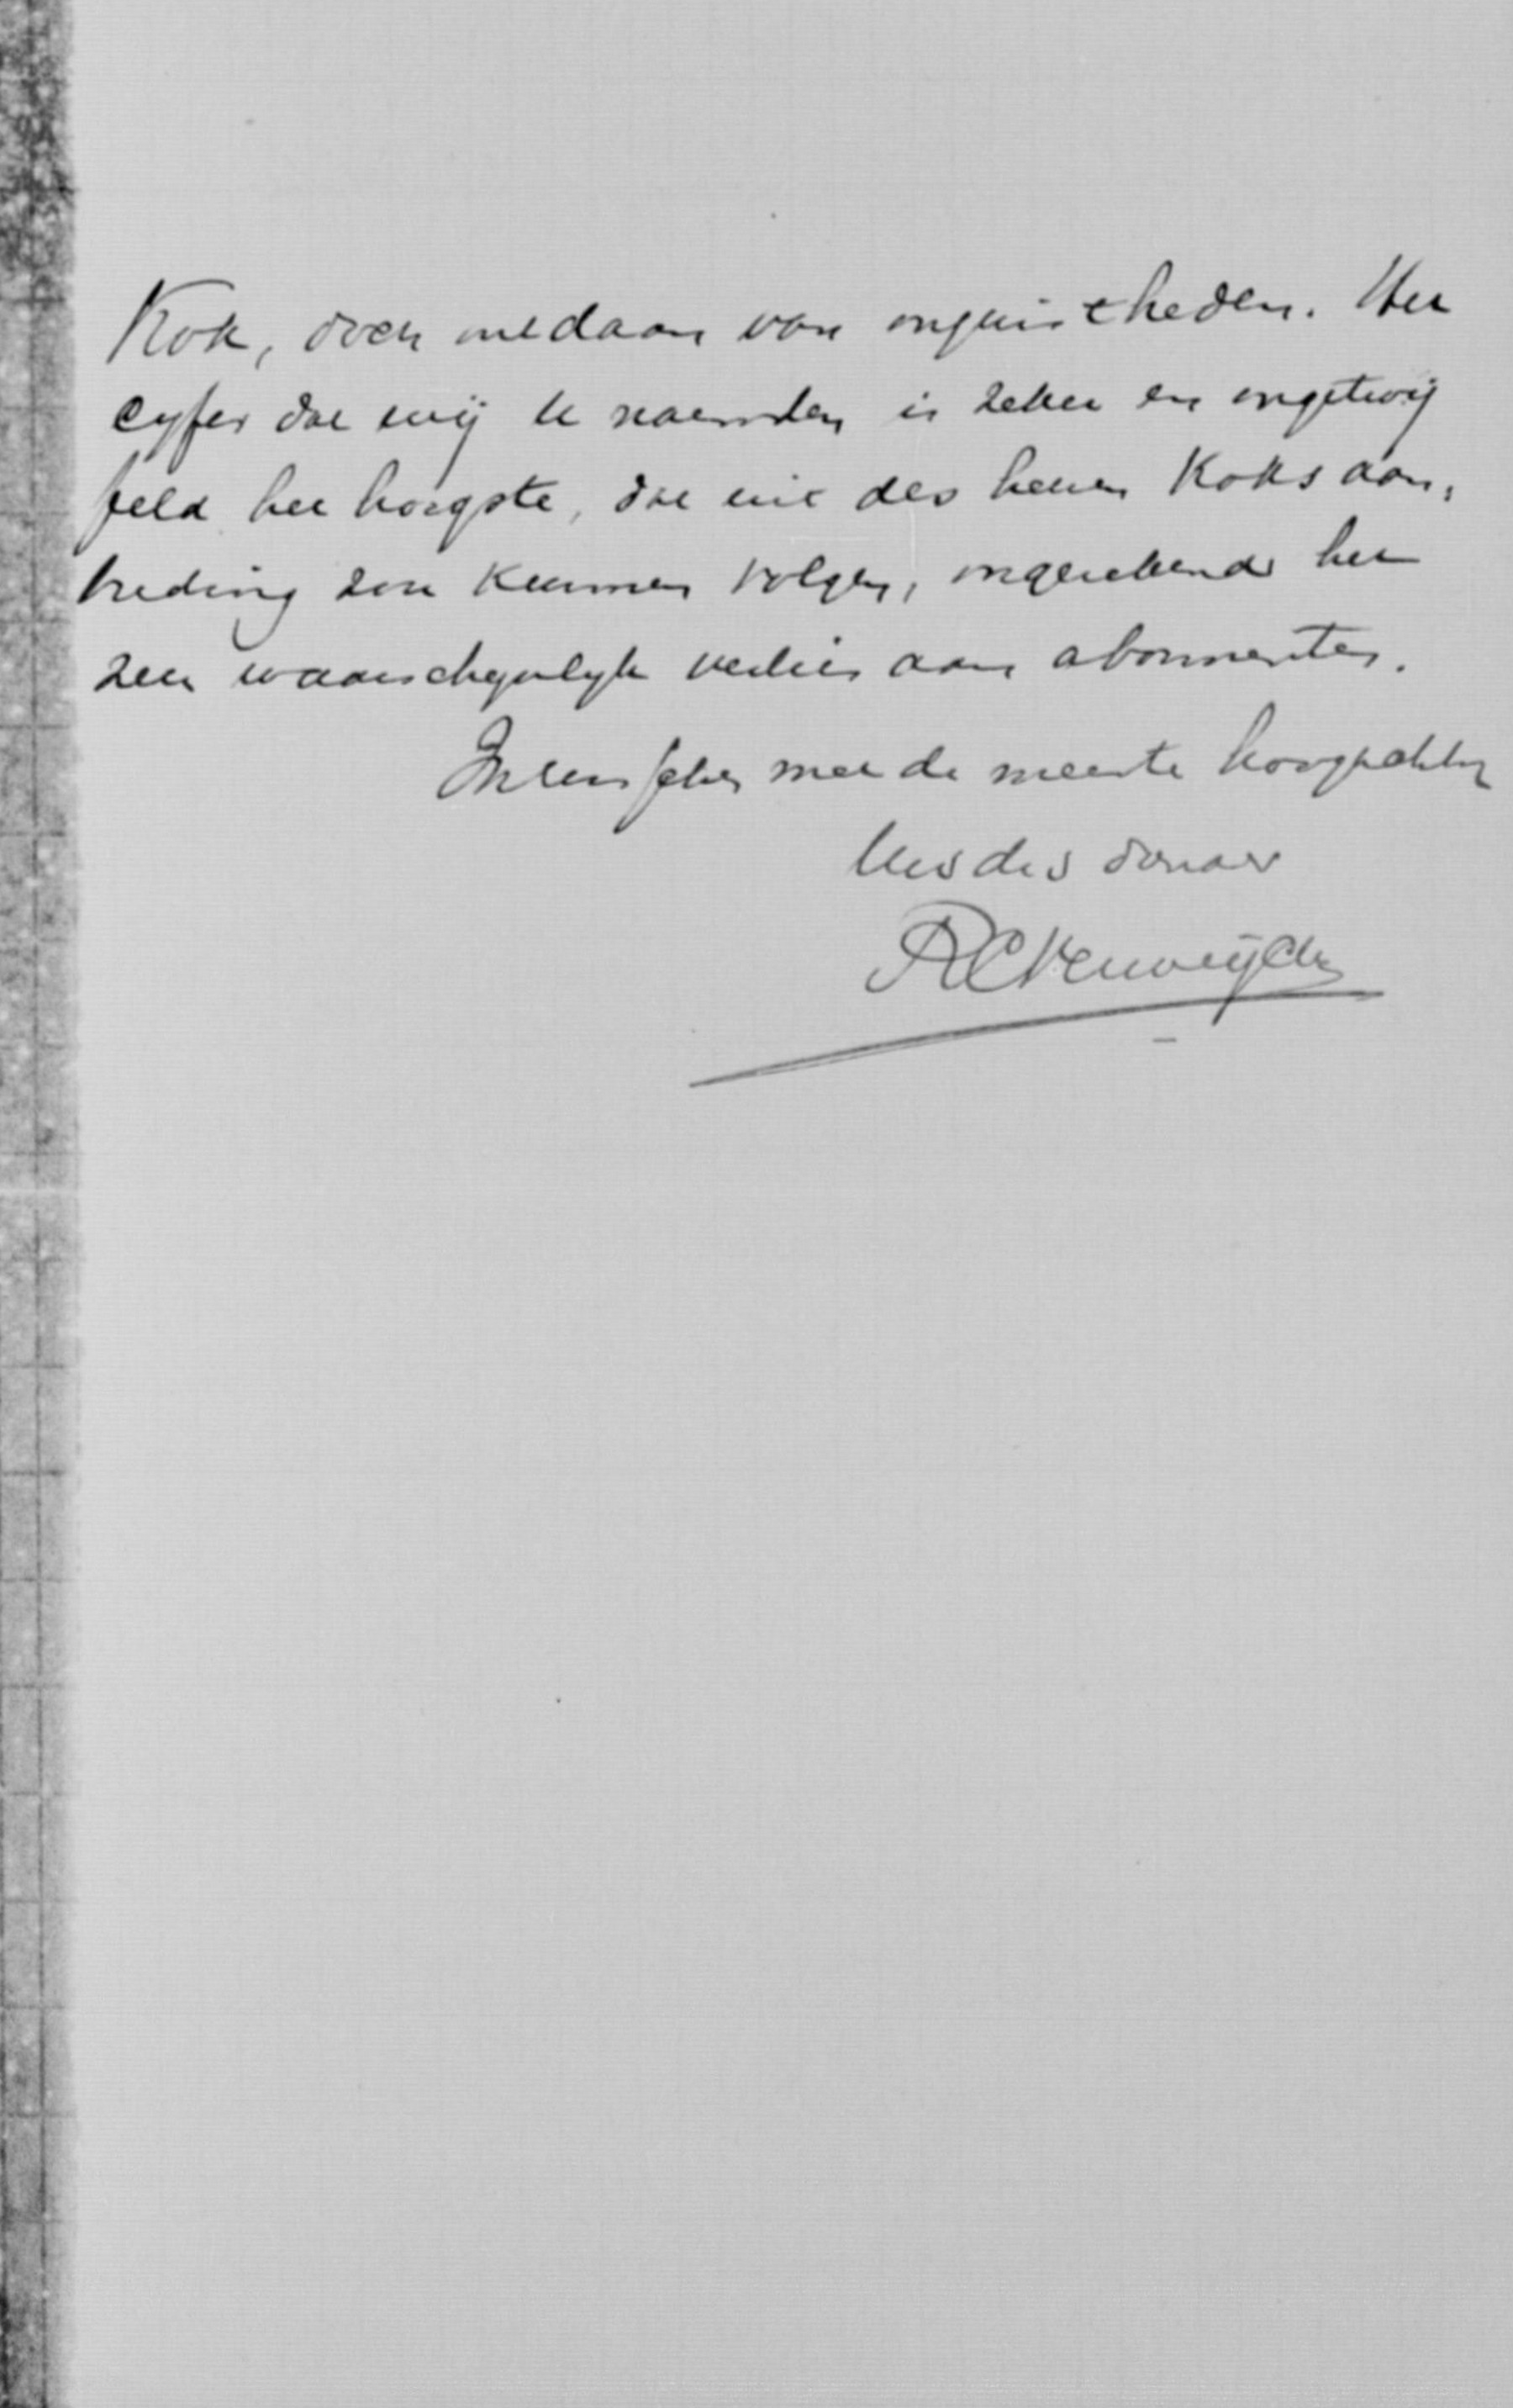 Kok, doch medaan van onjuistheden. Het
cyfer dat wij U noemden is zeker en ongetwij
feld het hoogste, dat uit des heeren Koks aan,
treding zou kunnen volgen, ongerekend het
zeer waarschynlyk verlies aan abonnenten.
Intusschen met de meeste hoogachting
Uws dw donaar